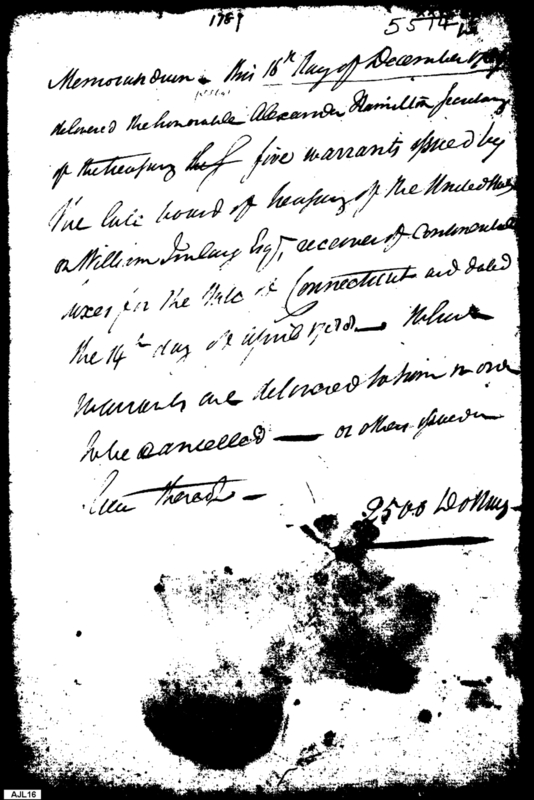 1789
5574
Memorandum - this 16th Day of December 1789
delivered the honorable Alexander Hamilton Secretary
of the treasury the five warrants issued by
the late board of treasury of the United States
on William Imlay Esqr, receiver of Continental
taxes for the State of Connecticut and dated
the 14th day of April 1788 — Which
warrants are delivered to him in order
to be cancelled — or others issued in
lieu thereof —
2500 Dollars
AJL16